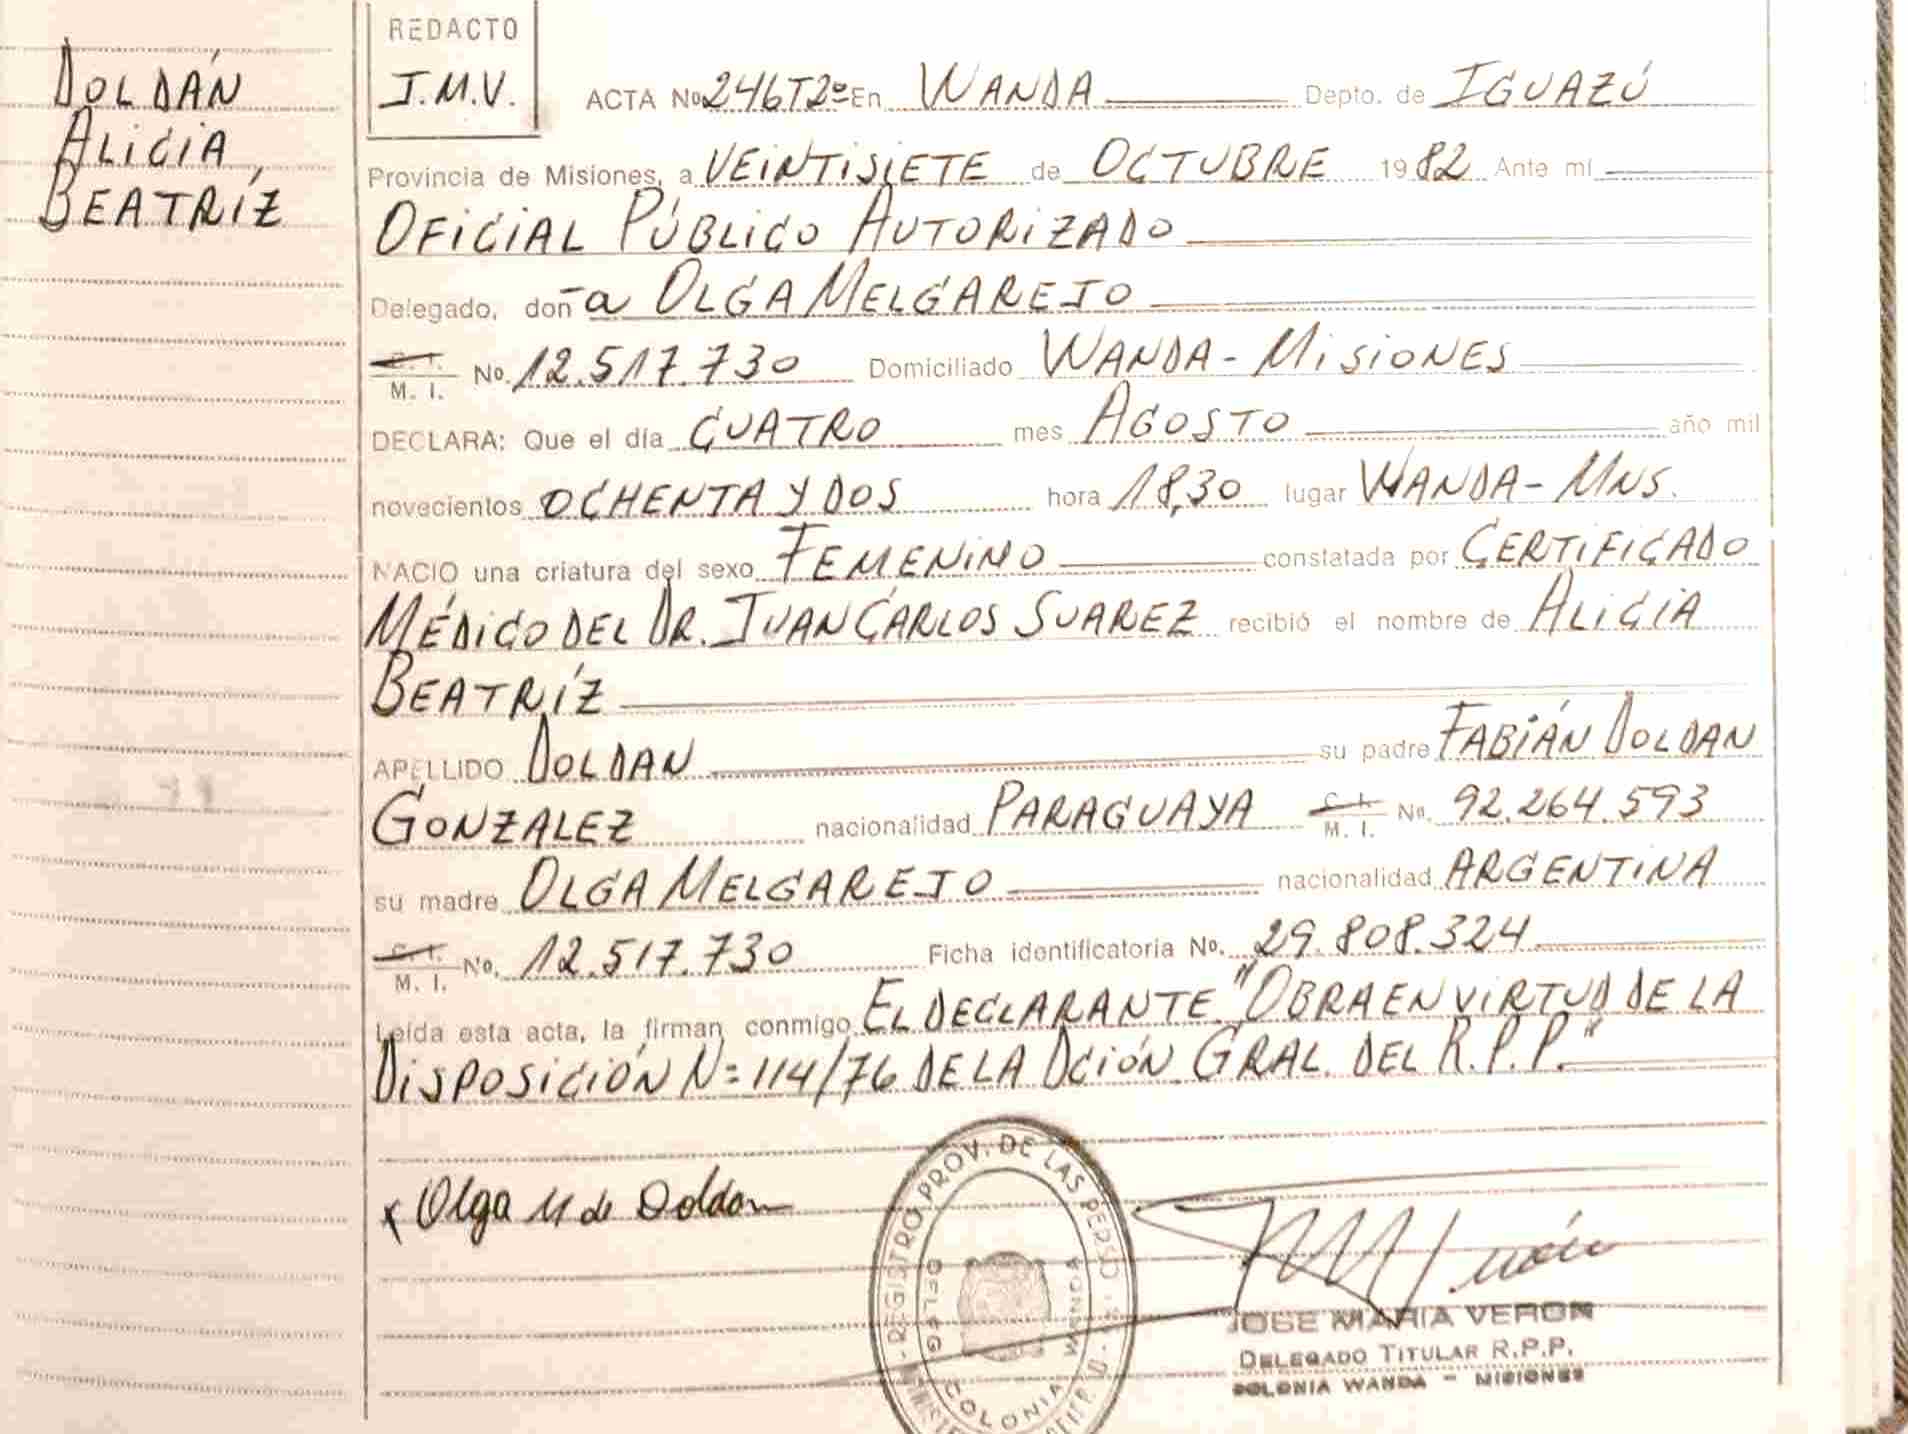 DOLDÁN
ALICIA
BEATRÍZ
REDACTO
J.M.V.
ACTA No 246T2º En WANDA Depto. de IGUAZÚ
Provincia de Misiones, a VEINTISIETE de OCTUBRE 1982 Ante mí
OFICIAL PÚBLICO AUTORIZADO
Delegado, don-a OLGA MELGAREJO
C. I.
M. I. No. 12.517.730 Domiciliado WANDA - MISIONES
DECLARA: Que el día CUATRO mes AGOSTO año mil
novecientos OCHENTA Y DOS hora 18,30 lugar WANDA - MNS.
NACIO una criatura del sexo FEMENINO constatada por CERTIFICADO
MÉDICO DEL DR. JUAN CARLOS SUAREZ recibió el nombre de ALICIA
BEATRÍZ
APELLIDO DOLDAN su padre FABIÁN DOLDAN
GONZALEZ nacionalidad PARAGUAYA C. I. M. I. No. 92.264.593
su madre OLGA MELGAREJO nacionalidad ARGENTINA
C. I.
M. I. No. 12.517.730 Ficha identificatoria No. 29.808.324
Leída esta acta, la firman conmigo EL DECLARANTE. "OBRA EN VIRTUD DE LA
DISPOSICIÓN N= 114/76 DE LA DCIÓN. GRAL. DEL R.P.P."
x Olga M de Doldan
REGISTRO PROV. DE LAS PERSO
DELEG
COLONIA
WANDA
JOSE MARIA VERON
DELEGADO TITULAR R.P.P.
COLONIA WANDA - MISIONES